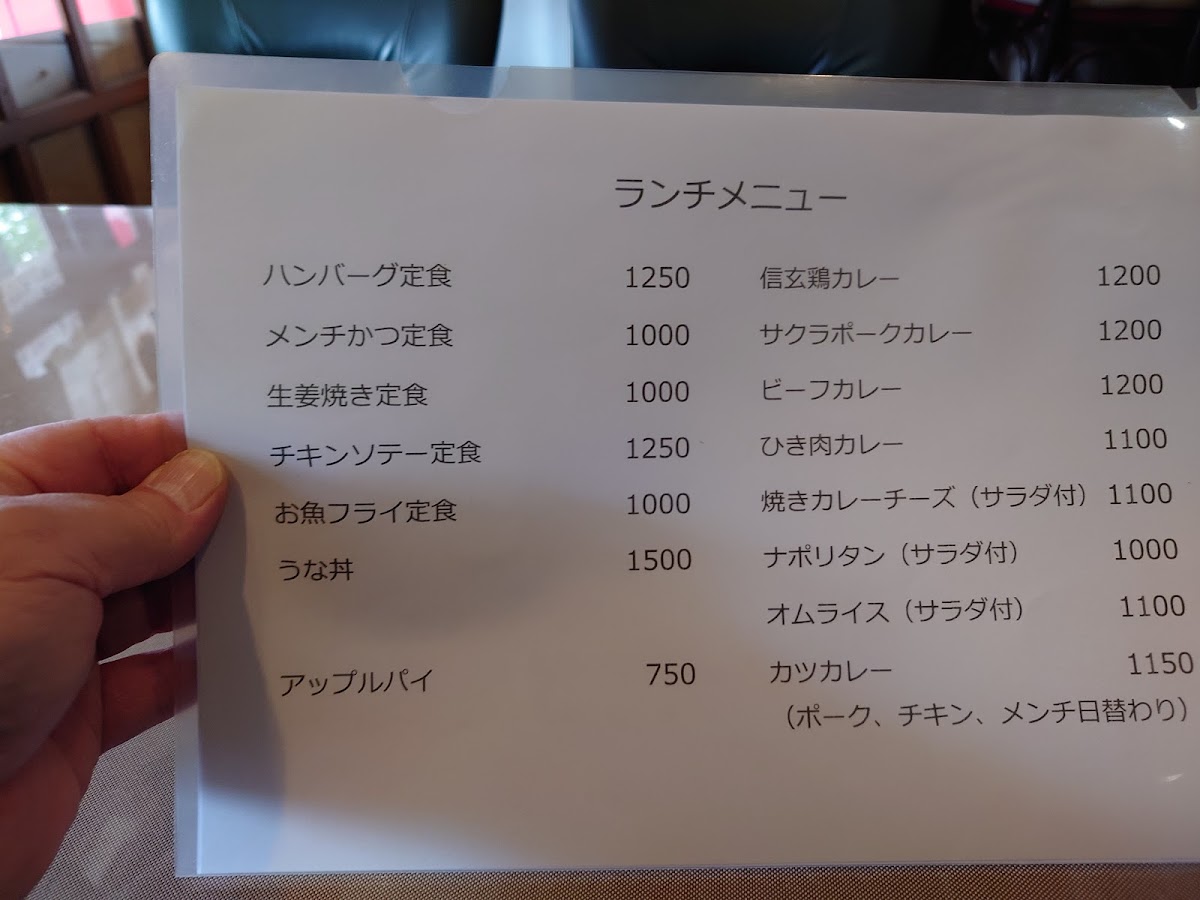 ランチメニュー
ハンバーグ定食 1250
メンチかつ定食 1000
生姜焼き定食 1000
チキンソテー定食 1250
お魚フライ定食 1000
うな丼 1500
アップルパイ 750
信玄鶏カレー 1200
サクラポークカレー 1200
ビーフカレー 1200
ひき肉カレー 1100
焼きカレーチーズ（サラダ付） 1100
ナポリタン（サラダ付） 1000
オムライス（サラダ付） 1100
カツカレー 1150
（ポーク、チキン、メンチ日替わり）